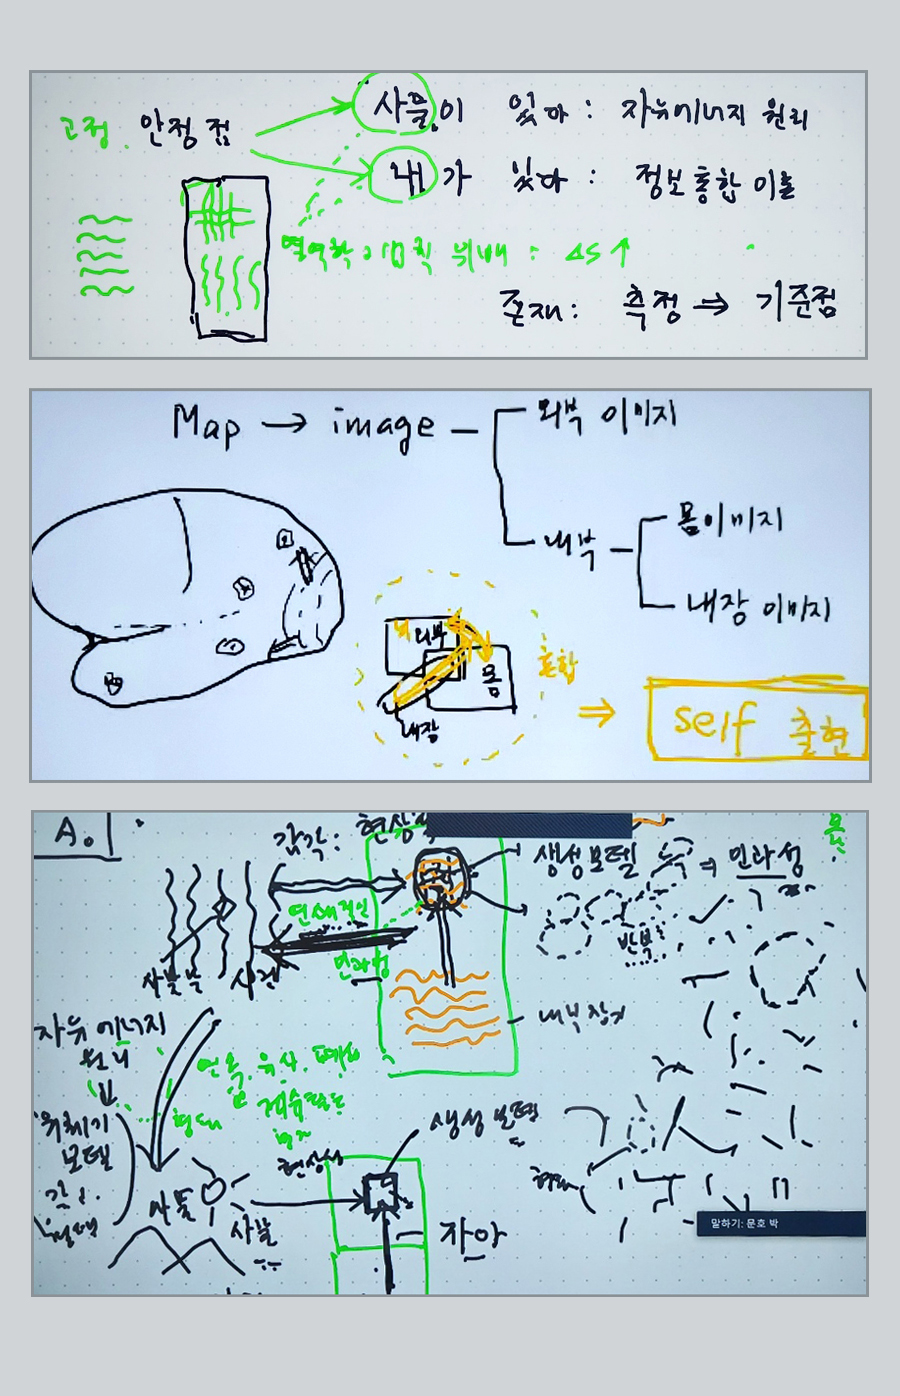 고정. 안정점
사물이 있다 : 자유에너지 원리
내가 있다 : 정보통합 이론
열역학 2법칙 위배 : ΔS↑
존재 : 측정 ⇒ 기준점
Map → image
외부 이미지
내부
몸이미지
내장 이미지
외부
몸
내장
혼합
⇒ self 출현
A.
감각: 현상
생성모델 ⇒ 인과성
연쇄적인
인과성
반복
사물들 사건
내부 장기
자유 에너지
원리
연속. 유사.
형태
생성 모델
모델
현상성
사물
사물
자아
형태
말하기: 문호 박